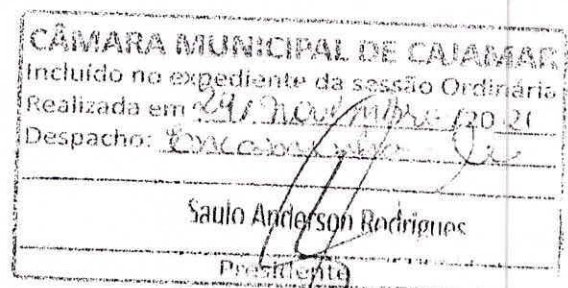 CÂMARA MUNICIPAL DE CAJAMAR
Incluído no expediente da sessão Ordinária
Realizada em 24/ novembro /20 21
Despacho: Encaminhe-se
Saulo Anderson Rodrigues
Presidente